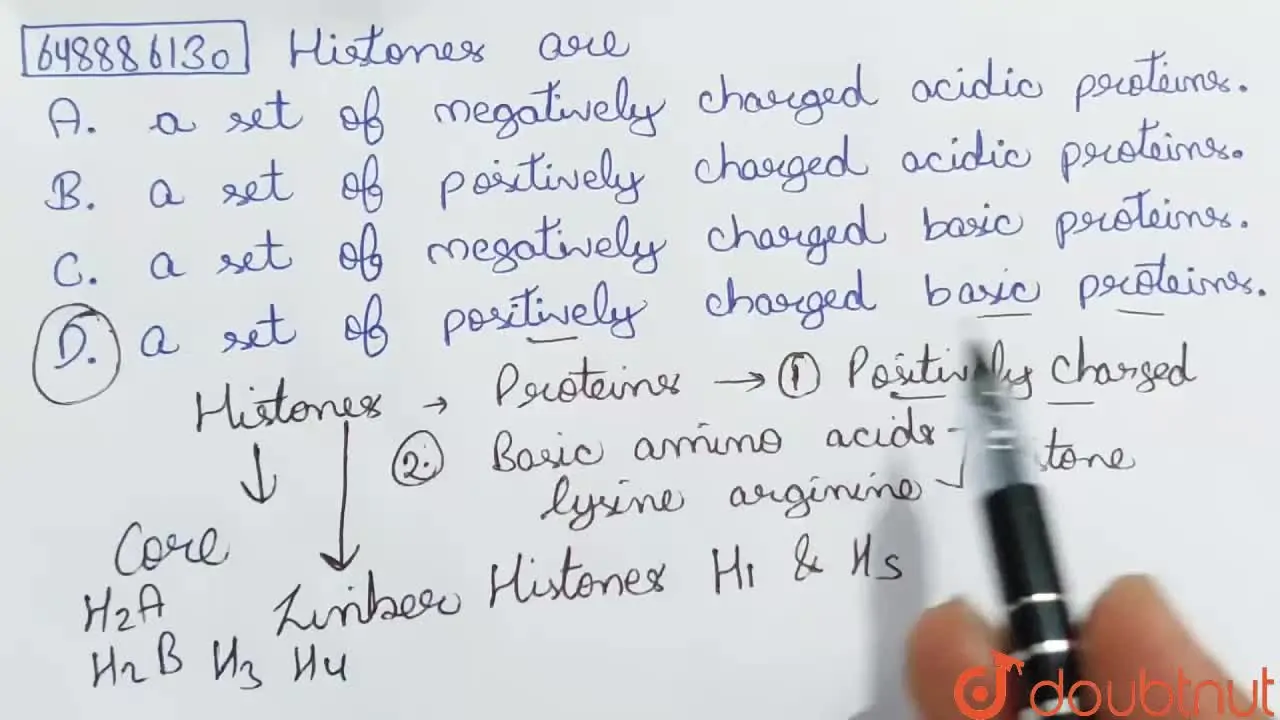 648886130 Histones are
A. a set of negatively charged acidic proteins.
B. a set of positively charged acidic proteins.
C. a set of negatively charged basic proteins.
D. a set of positively charged basic proteins.
Histones → Proteins → ① Positively charged
②. Basic amino acids
lysine arginine
Core
Linker Histones H1 & H5
H2A
H2B H3 H4
doubtnut